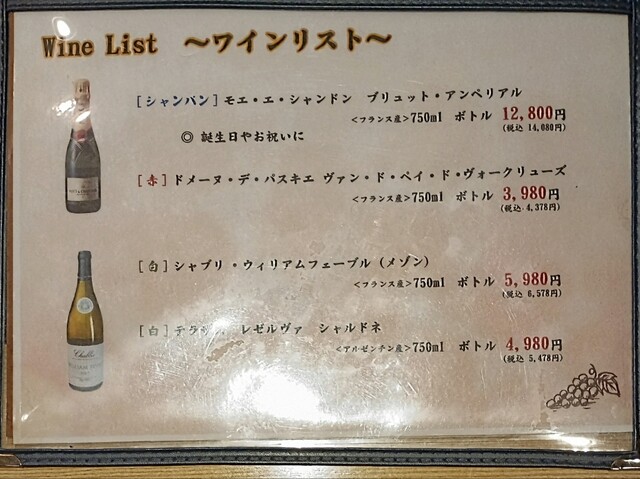 Wine List ～ワインリスト～
[シャンパン] モエ・エ・シャンドン ブリュット・アンペリアル
<フランス産>750ml ボトル 12,800円
(税込 14,080円)
◎ 誕生日やお祝いに
[赤] ドメーヌ・デ・パスキエ ヴァン・ド・ペイ・ド・ヴォークリューズ
<フランス産>750ml ボトル 3,980円
(税込 4,378円)
[白] シャブリ・ウィリアムフェーブル (メゾン)
<フランス産>750ml ボトル 5,980円
(税込 6,578円)
Chablis
[白] テラ レゼルヴァ シャルドネ
<アルゼンチン産>750ml ボトル 4,980円
(税込 5,478円)